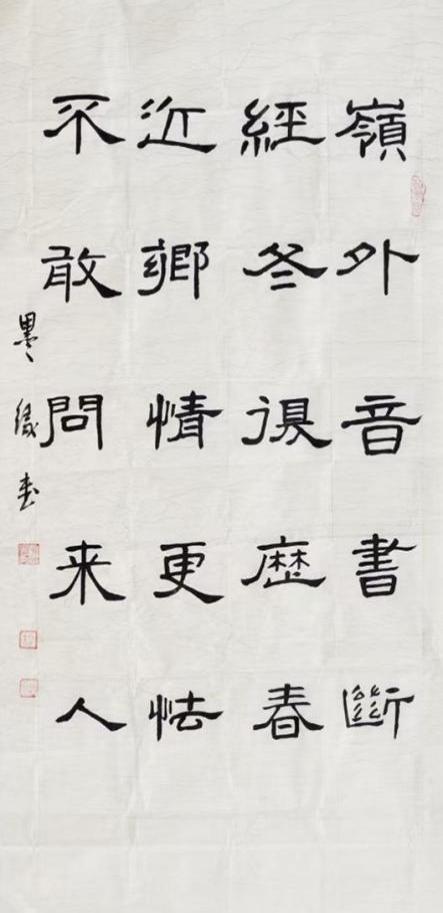 嶺外音書斷
經冬復歴春
近鄉情更怯
不敢問来人
墨緣書